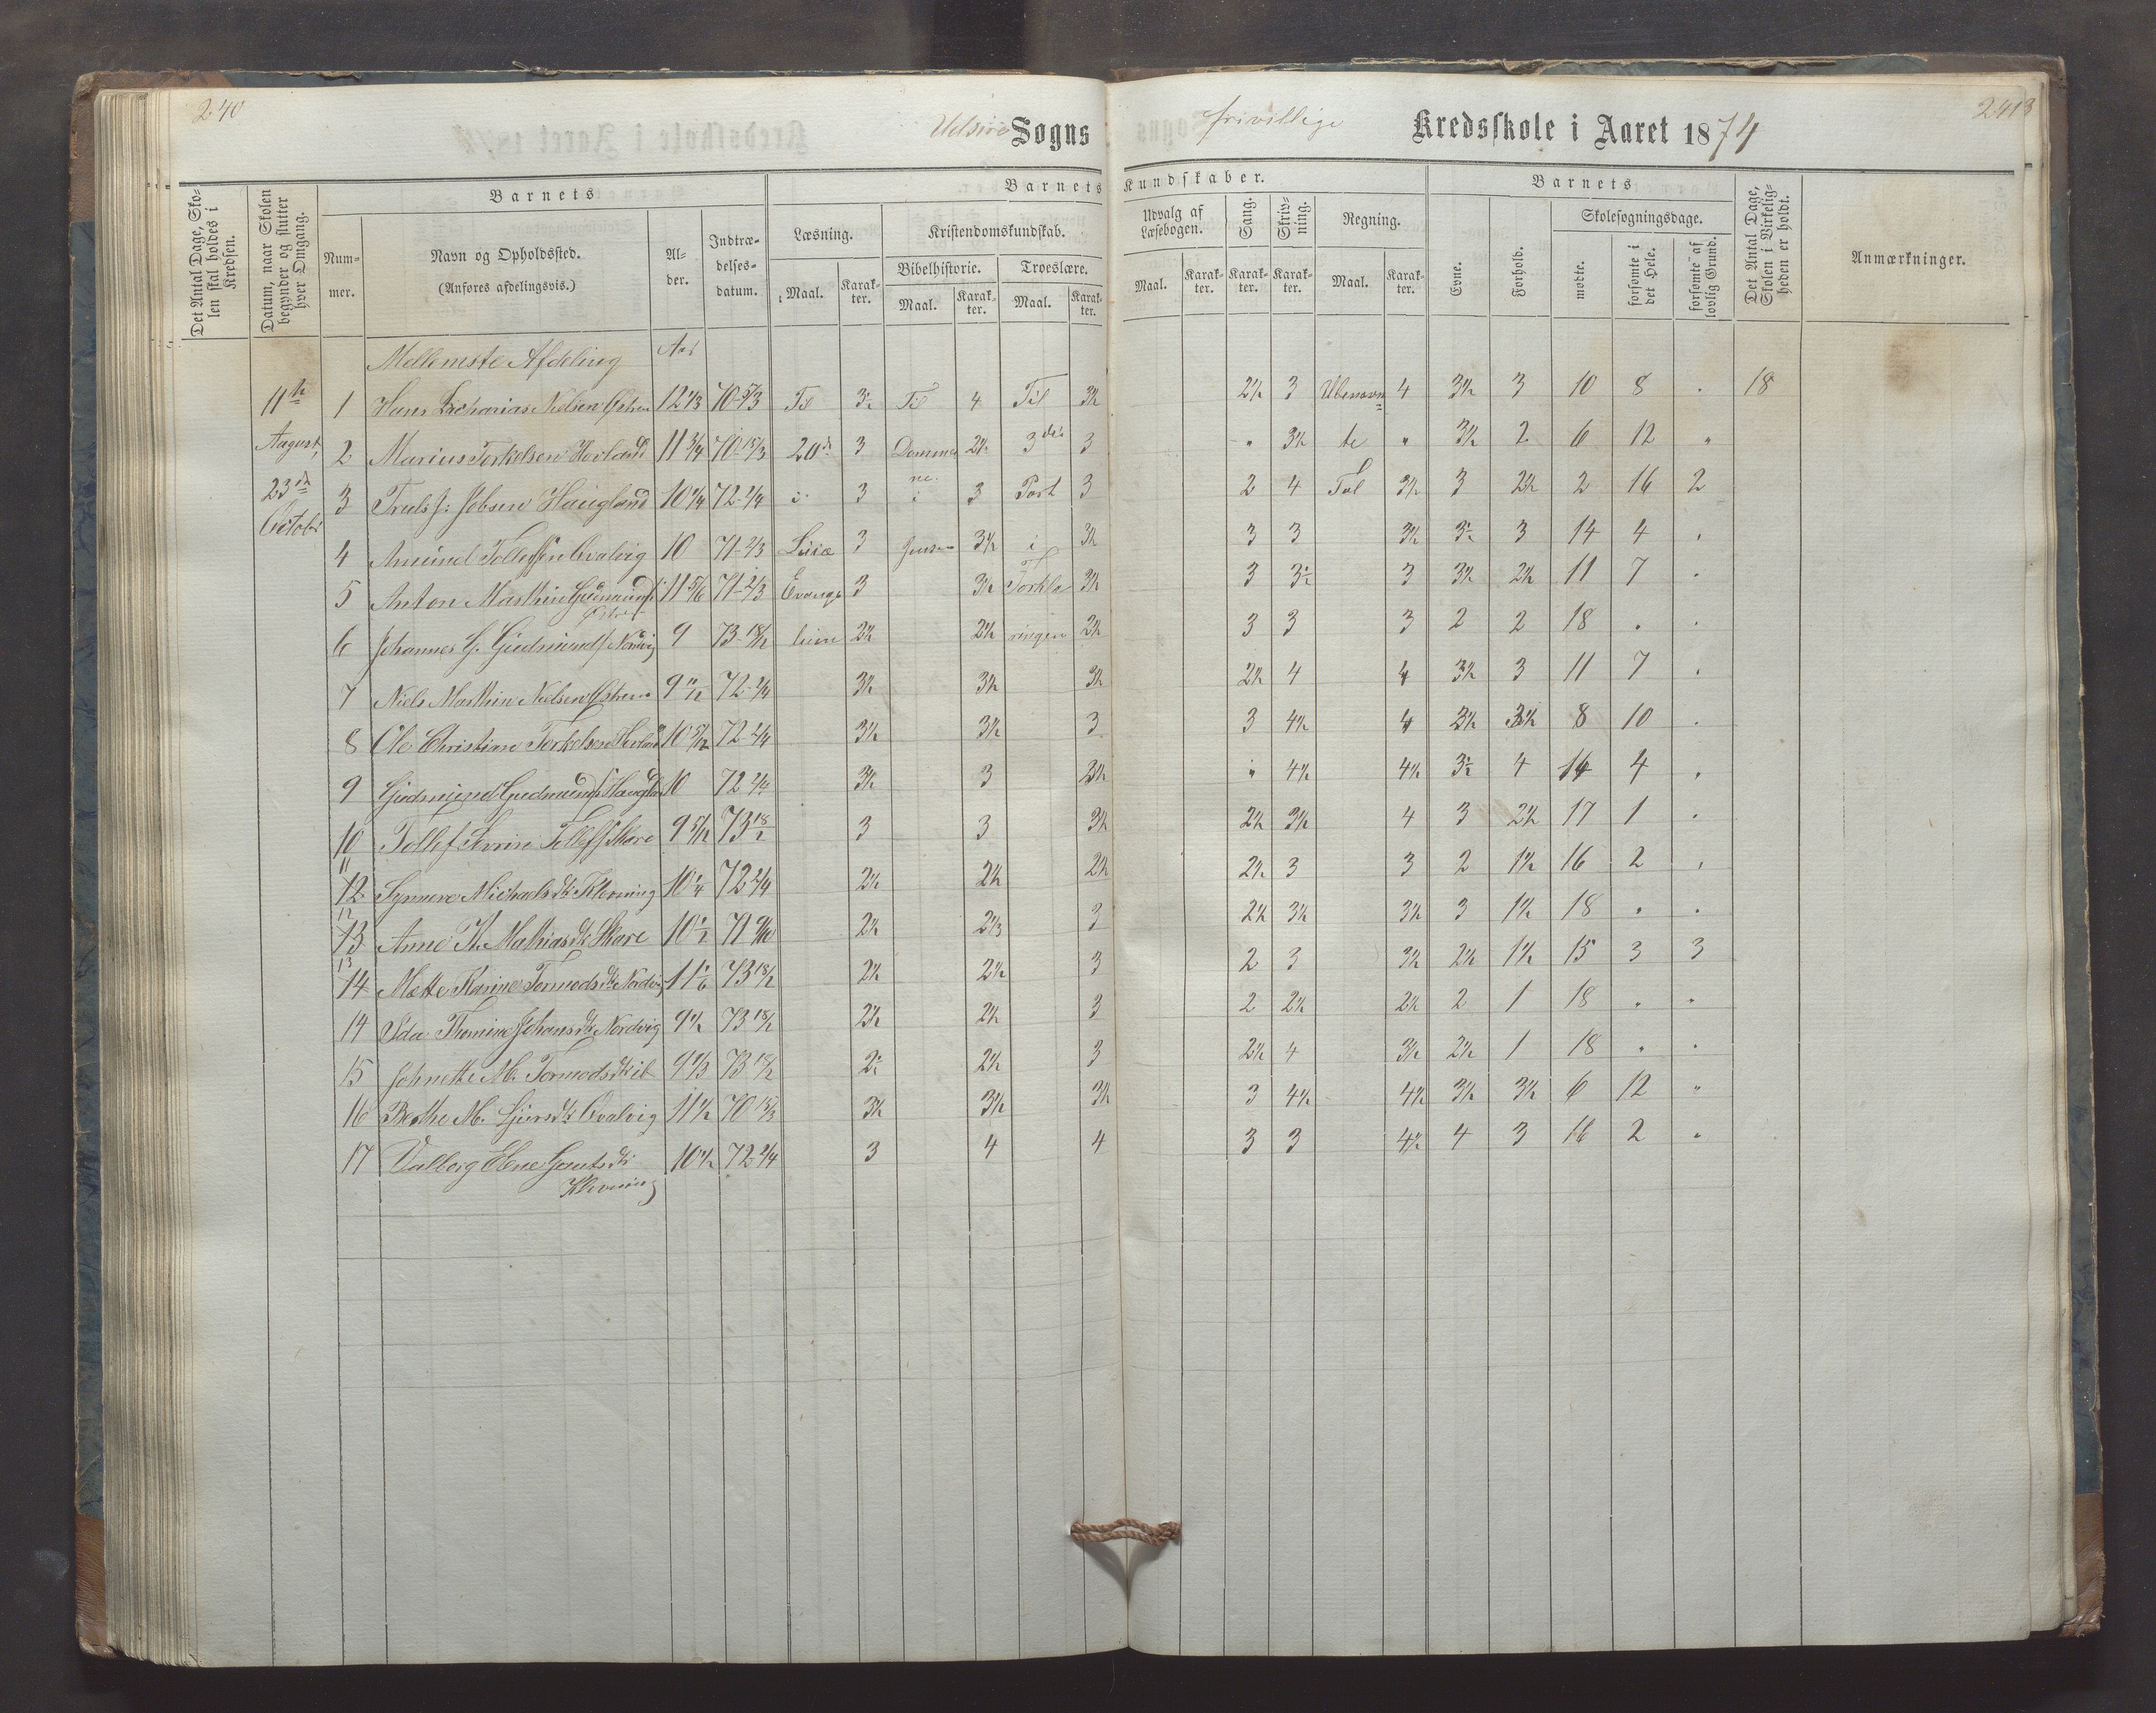 240
Udsire Sogns
frivillige Kredsskole i Aaret 1874
2413
Det Antal Dage, Skolen skal holdes i Kredsen.
Datum, naar Skolen begynder og slutter hver Omgang.
Barnets
Nummer.
Navn og Opholdssted.
(Anføres afdelingsvis.)
Alder.
Indtrædelsesdatum.
Barnets Kundskaber.
Læsning.
Maal.
Karakter.
Kristendomskundskab.
Bibelhistorie.
Maal.
Karakter.
Troeslære.
Maal.
Karakter.
Udvalg af Læsebogen.
Maal.
Karakter.
Sang.
Karakter.
Skrivning.
Karakter.
Regning.
Maal.
Karakter.
Barnets
Evne.
Forhold.
Skolesøgningsdage.
mødte.
forsømte i det Hele.
forsømte af lovlig Grund.
Det Antal Dage, Skolen i Virkeligheden er holdt.
Anmærkninger.
Mellemste Afdeling Aar
11te 1 Hans Zacharias Nielsen 12 1/3 70-5/3 Til 3½ Til 4 Til 3½ 2½ 3 Ubenævn= 4 3½ 3 10 8 . 18
August, 2 Marius Torkelsen Hovland 11 3/4 70-15/3 20de 3 Dommer 2½ 3die 3 " 3½ te " 3½ 2 6 12 "
23de 3 Truls J. Jobsen Haugland 10 1/4 72-2/4 i 3 ne. i 3 Part 3 2 4 Tal 3½ 3 2½ 2 16 2
October
4 Amund Tollefsen Qvalvig 10 71-2/3 3 3½ i 3½ 3 3 3½ 3½ 3 14 4 .
5 Anton Marthin Gudmunds. 11 5/6 71-2/3 Evange 3 3½ Forkla 3½ 3 3½ 3 3½ 2½ 11 7 .
6 Johannes G. Gudmunds. Nordvig 9 73-18/2 lium 2½ 2½ ringen 2½ 3 3 3 2 2 18 . .
7 Niels Marthin Nielsen 9 11/12 72-2/4 3½ 3½ 3½ 2½ 4 4 3½ 3 11 7 .
8 Ole Christian Torkelsen Hovland 10 5/12 72-2/4 3½ 3½ 3 3 4½ 4 3½ 3½ 8 10 .
9 Gudmund Gudmunds. Haugland 10 72 2/4 3½ 3 3½ " 4½ 4½ 3½ 4 14 4 .
10 Tollef Tollefs. Skare 9 5/12 73 18/2 3 3 3½ 2½ 3½ 4 3 2½ 17 1 .
11
12 Synneve Michaelsdtr Klovning 10 1/4 72 2/4 2½ 2½ 2½ 2½ 3 3 2 1½ 16 2 .
12
13 Anne Th. Mathiasdtr Skare 10 1/2 71 2½ 2⅓ 3 2½ 3½ 3½ 3 1½ 18 . .
13
14 Mette Karine Tormodsdtr Nordvig 11 1/6 73 18/2 2½ 2½ 3 2 3 3½ 2½ 1½ 15 3 3
14 Ida Thomine Johansdtr Nordvig 9½ 73 18/2 2½ 2½ 3 2 2½ 2½ 2 1 18 . .
15 Johnette M. Tormodsdtr ib 9 1/3 73 18/2 2½ 2½ 3 2½ 4 3½ 2½ 1 18 . .
16 Berthe M. Sjursdtr Qvalvig 11½ 70 15/3 3½ 3½ 3½ 3 4½ 4½ 3½ 3½ 6 12 "
17 Valborg Elene Gautsdtr 10½ 72-2/4 3 4 4 3 3 4½ 4 3 16 2 .
Klovning